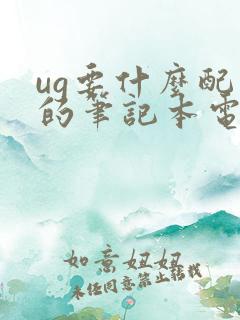 ug要什麼配
的筆記本電
如意妞妞
未经同意禁止转载